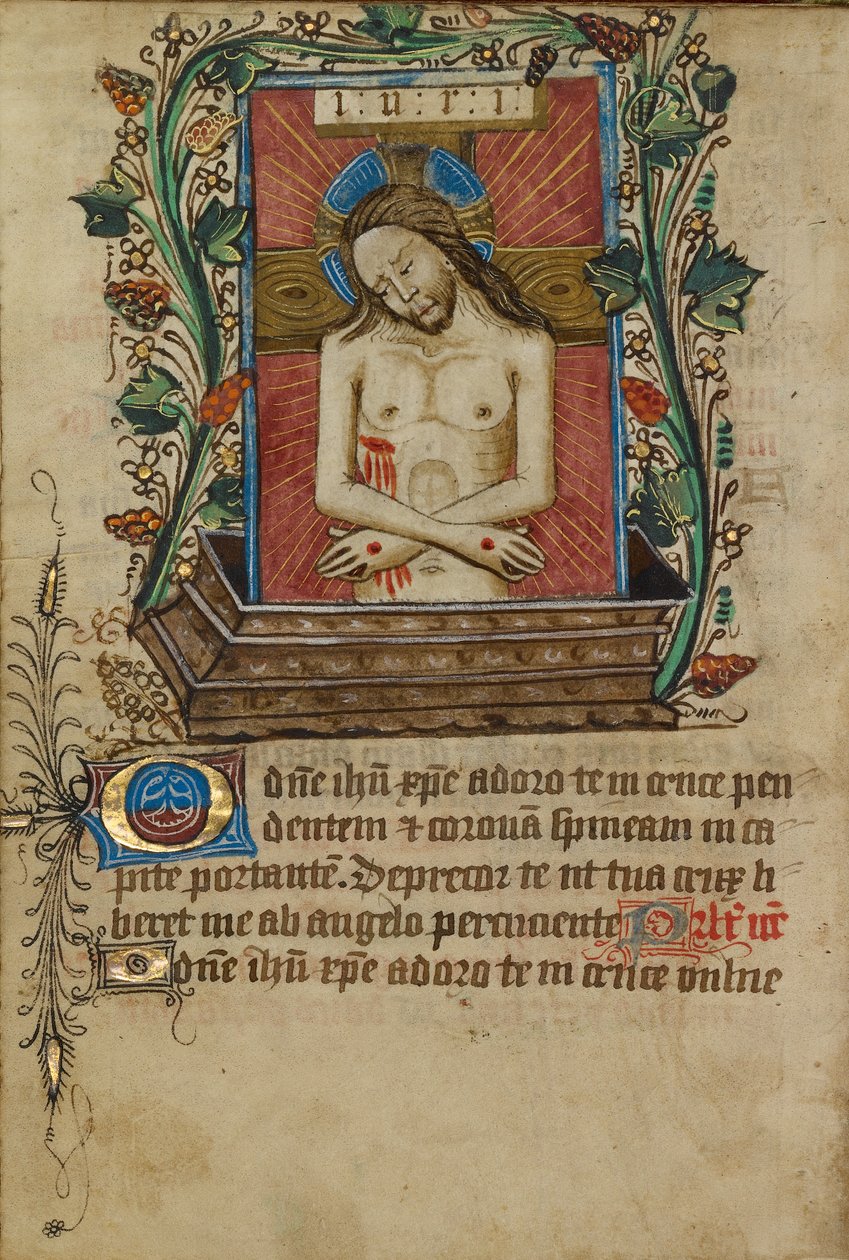 i : n : r : i :
O dn̄e ihū xp̄e adoro te in cruce pen
dentem ⁊ coronā spineam in ca
pite portantē. Deprecor te ut tua crux li
beret me ab angelo percuciente Pr̄ nr̄
O dn̄e ihū xp̄e adoro te in cruce vulne